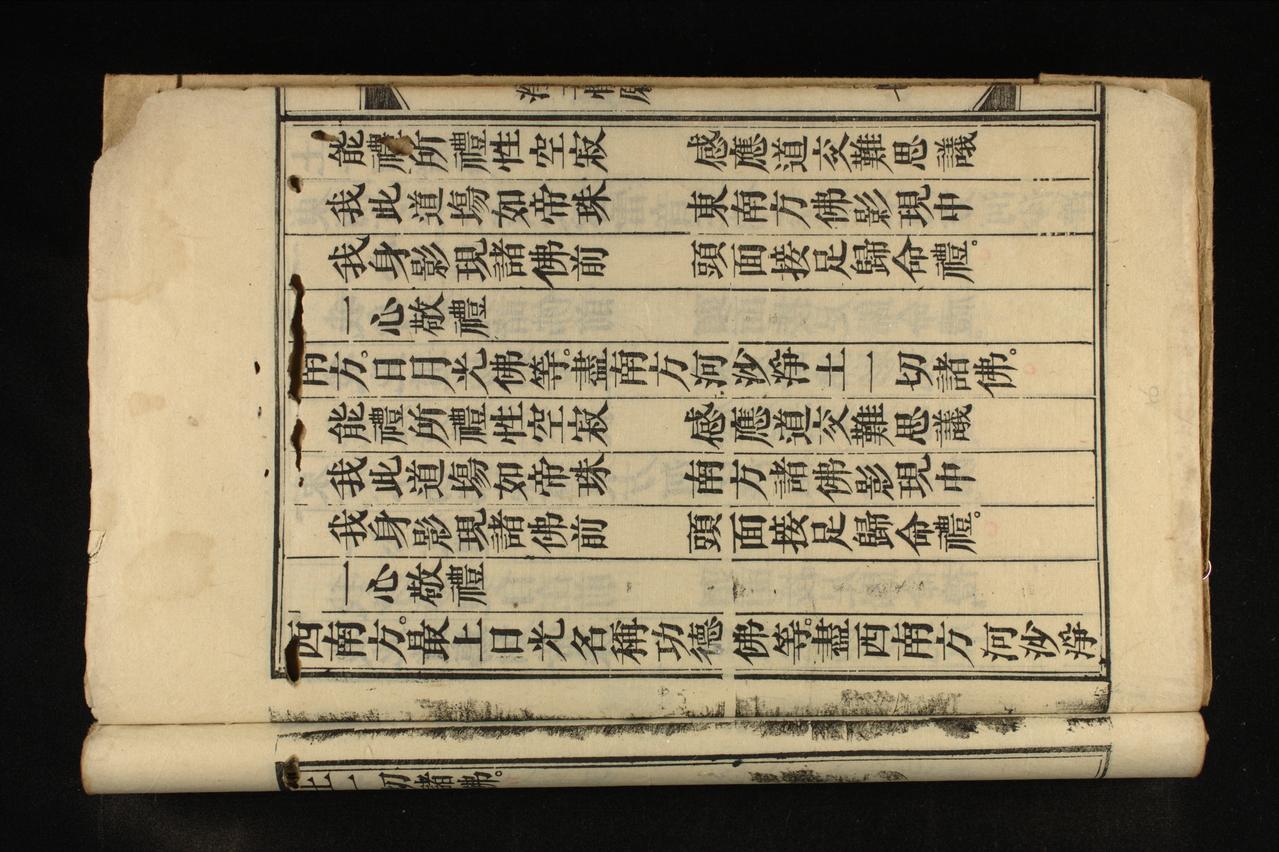 能禮所禮性空寂　感應道交難思議
我此道場如帝珠　東南方佛影現中
我身影現諸佛前　頭面接足歸命禮。
一心敬禮
南方。日月光佛等。盡南方河沙淨土一切諸佛。
能禮所禮性空寂　感應道交難思議
我此道場如帝珠　南方諸佛影現中
我身影現諸佛前　頭面接足歸命禮。
一心敬禮
西南方。最上日光名稱功德佛等。盡西南方河沙淨
土一切諸佛。